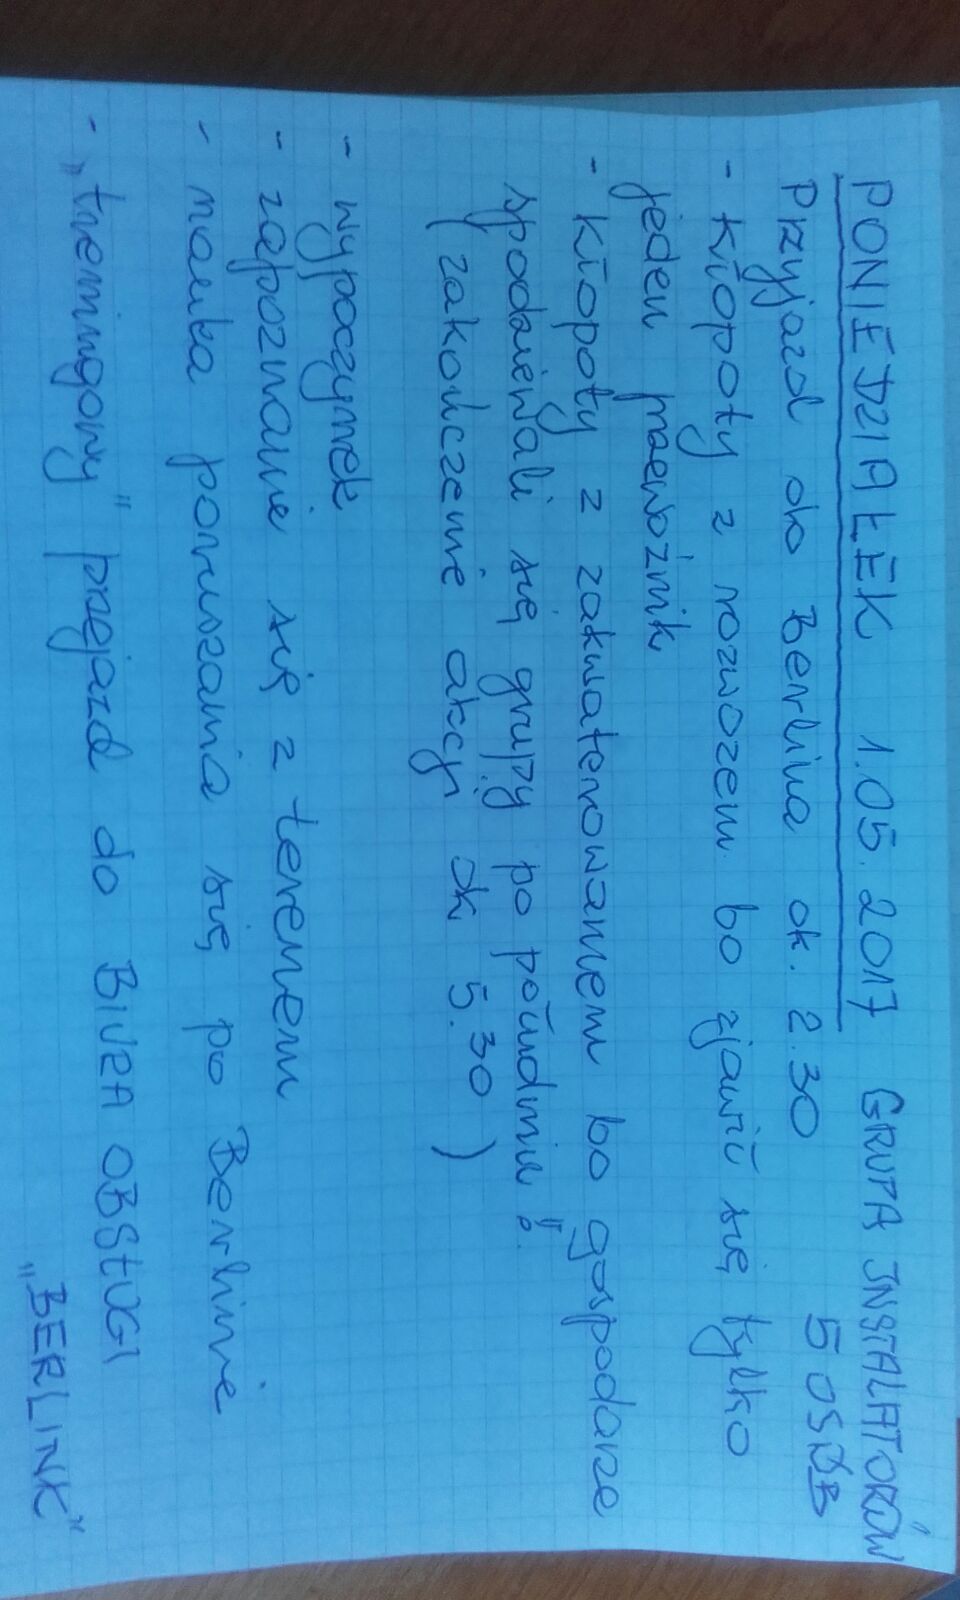 PONIEDZIAŁEK 1.05.2017 GRUPA INSTALATORÓW
Przyjazd do Berlina ok. 2.30 5 OSÓB
- kłopoty z rozwozem bo zjawił się tylko
jeden przewoźnik
- kłopoty z zakwaterowaniem bo gospodarze
spodziewali się grupy po południu!!
(zakończenie akcji ok 5.30)
- wypoczynek
- zapoznanie się z terenem
- nauka poruszania się po Berlinie
- „treningowy" przejazd do BIURA OBSŁUGI
"BERLINK"